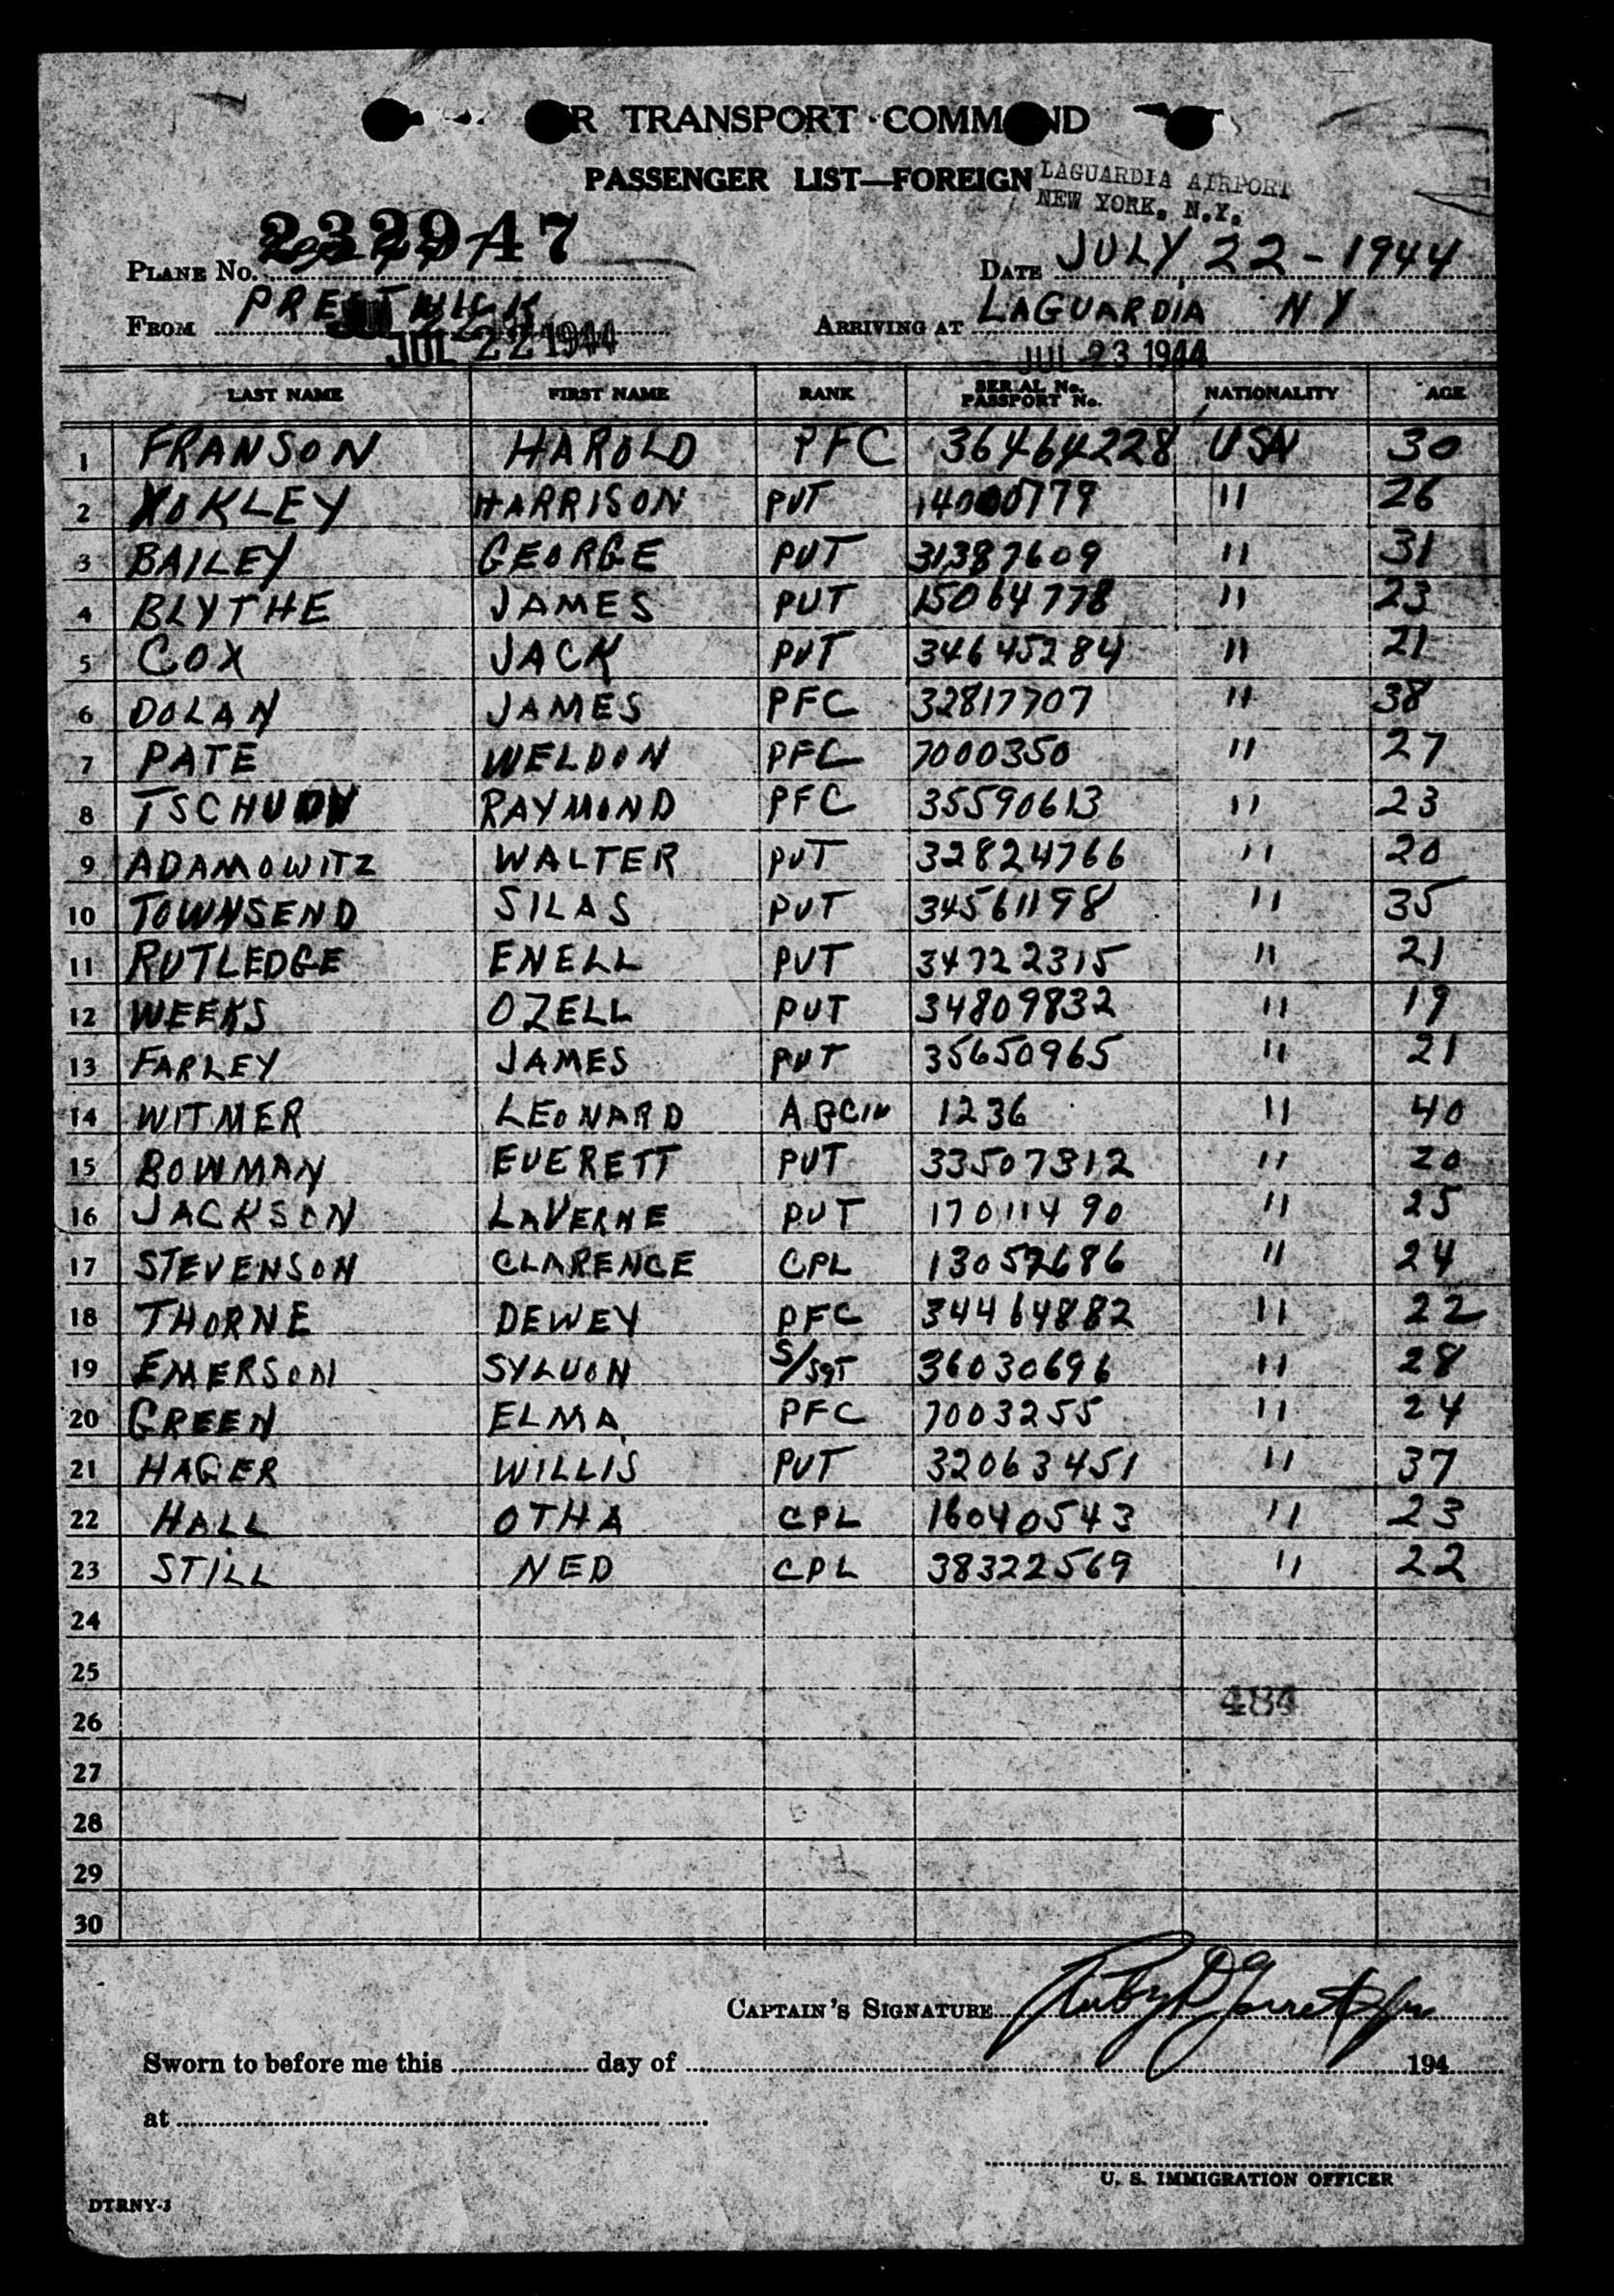 R TRANSPORT COMM ND
PASSENGER LIST—FOREIGN LAGUARDIA AIRPORT
NEW YORK, N.Y.
232947
PLANE No. DATE JULY 22-1944
FROM PRESTWICK ARRIVING AT LAGUARDIA NY
JUL 22 1944 JUL 23 1944
LAST NAME FIRST NAME RANK SERIAL No. PASSPORT No. NATIONALITY AGE
1 FRANSON HAROLD PFC 36464228 USA 30
2 YOKLEY HARRISON PVT 26
3 BAILEY GEORGE PVT 31387609 " 31
4 BLYTHE JAMES PVT 15064778 " 23
5 COX JACK PVT 34645284 " 21
6 DOLAN JAMES PFC 32817707 " 38
7 PATE WELDON PFC 7000350 " 27
8 TSCHUDY RAYMOND PFC 35590613 " 23
9 ADAMOWITZ WALTER PVT 32824766 " 20
10 TOWNSEND SILAS PVT 34561198 " 35
11 RUTLEDGE ENELL PVT 34722315 " 21
12 WEEKS OZELL PVT 34809832 " 19
13 FARLEY JAMES PVT 35650965 " 21
14 WITMER LEONARD 1236 " 40
15 BOWMAN EVERETT PVT 33507312 " 20
16 JACKSON LAVERNE PVT 17011490 " 25
17 STEVENSON CLARENCE CPL 13052686 " 24
18 THORNE DEWEY PFC 34464882 " 22
19 EMERSON SYLVON S/SGT 36030696 " 28
20 GREEN ELMA PFC 7003255 " 24
21 HAGER WILLIS PVT 32063451 " 37
22 HALL OTHA CPL 16040543 " 23
23 STILL NED CPL 38322569 " 22
24
25
484
26
27
28
29
30
CAPTAIN'S SIGNATURE
Sworn to before me this day of 194
at
U. S. IMMIGRATION OFFICER
DTRNY-3